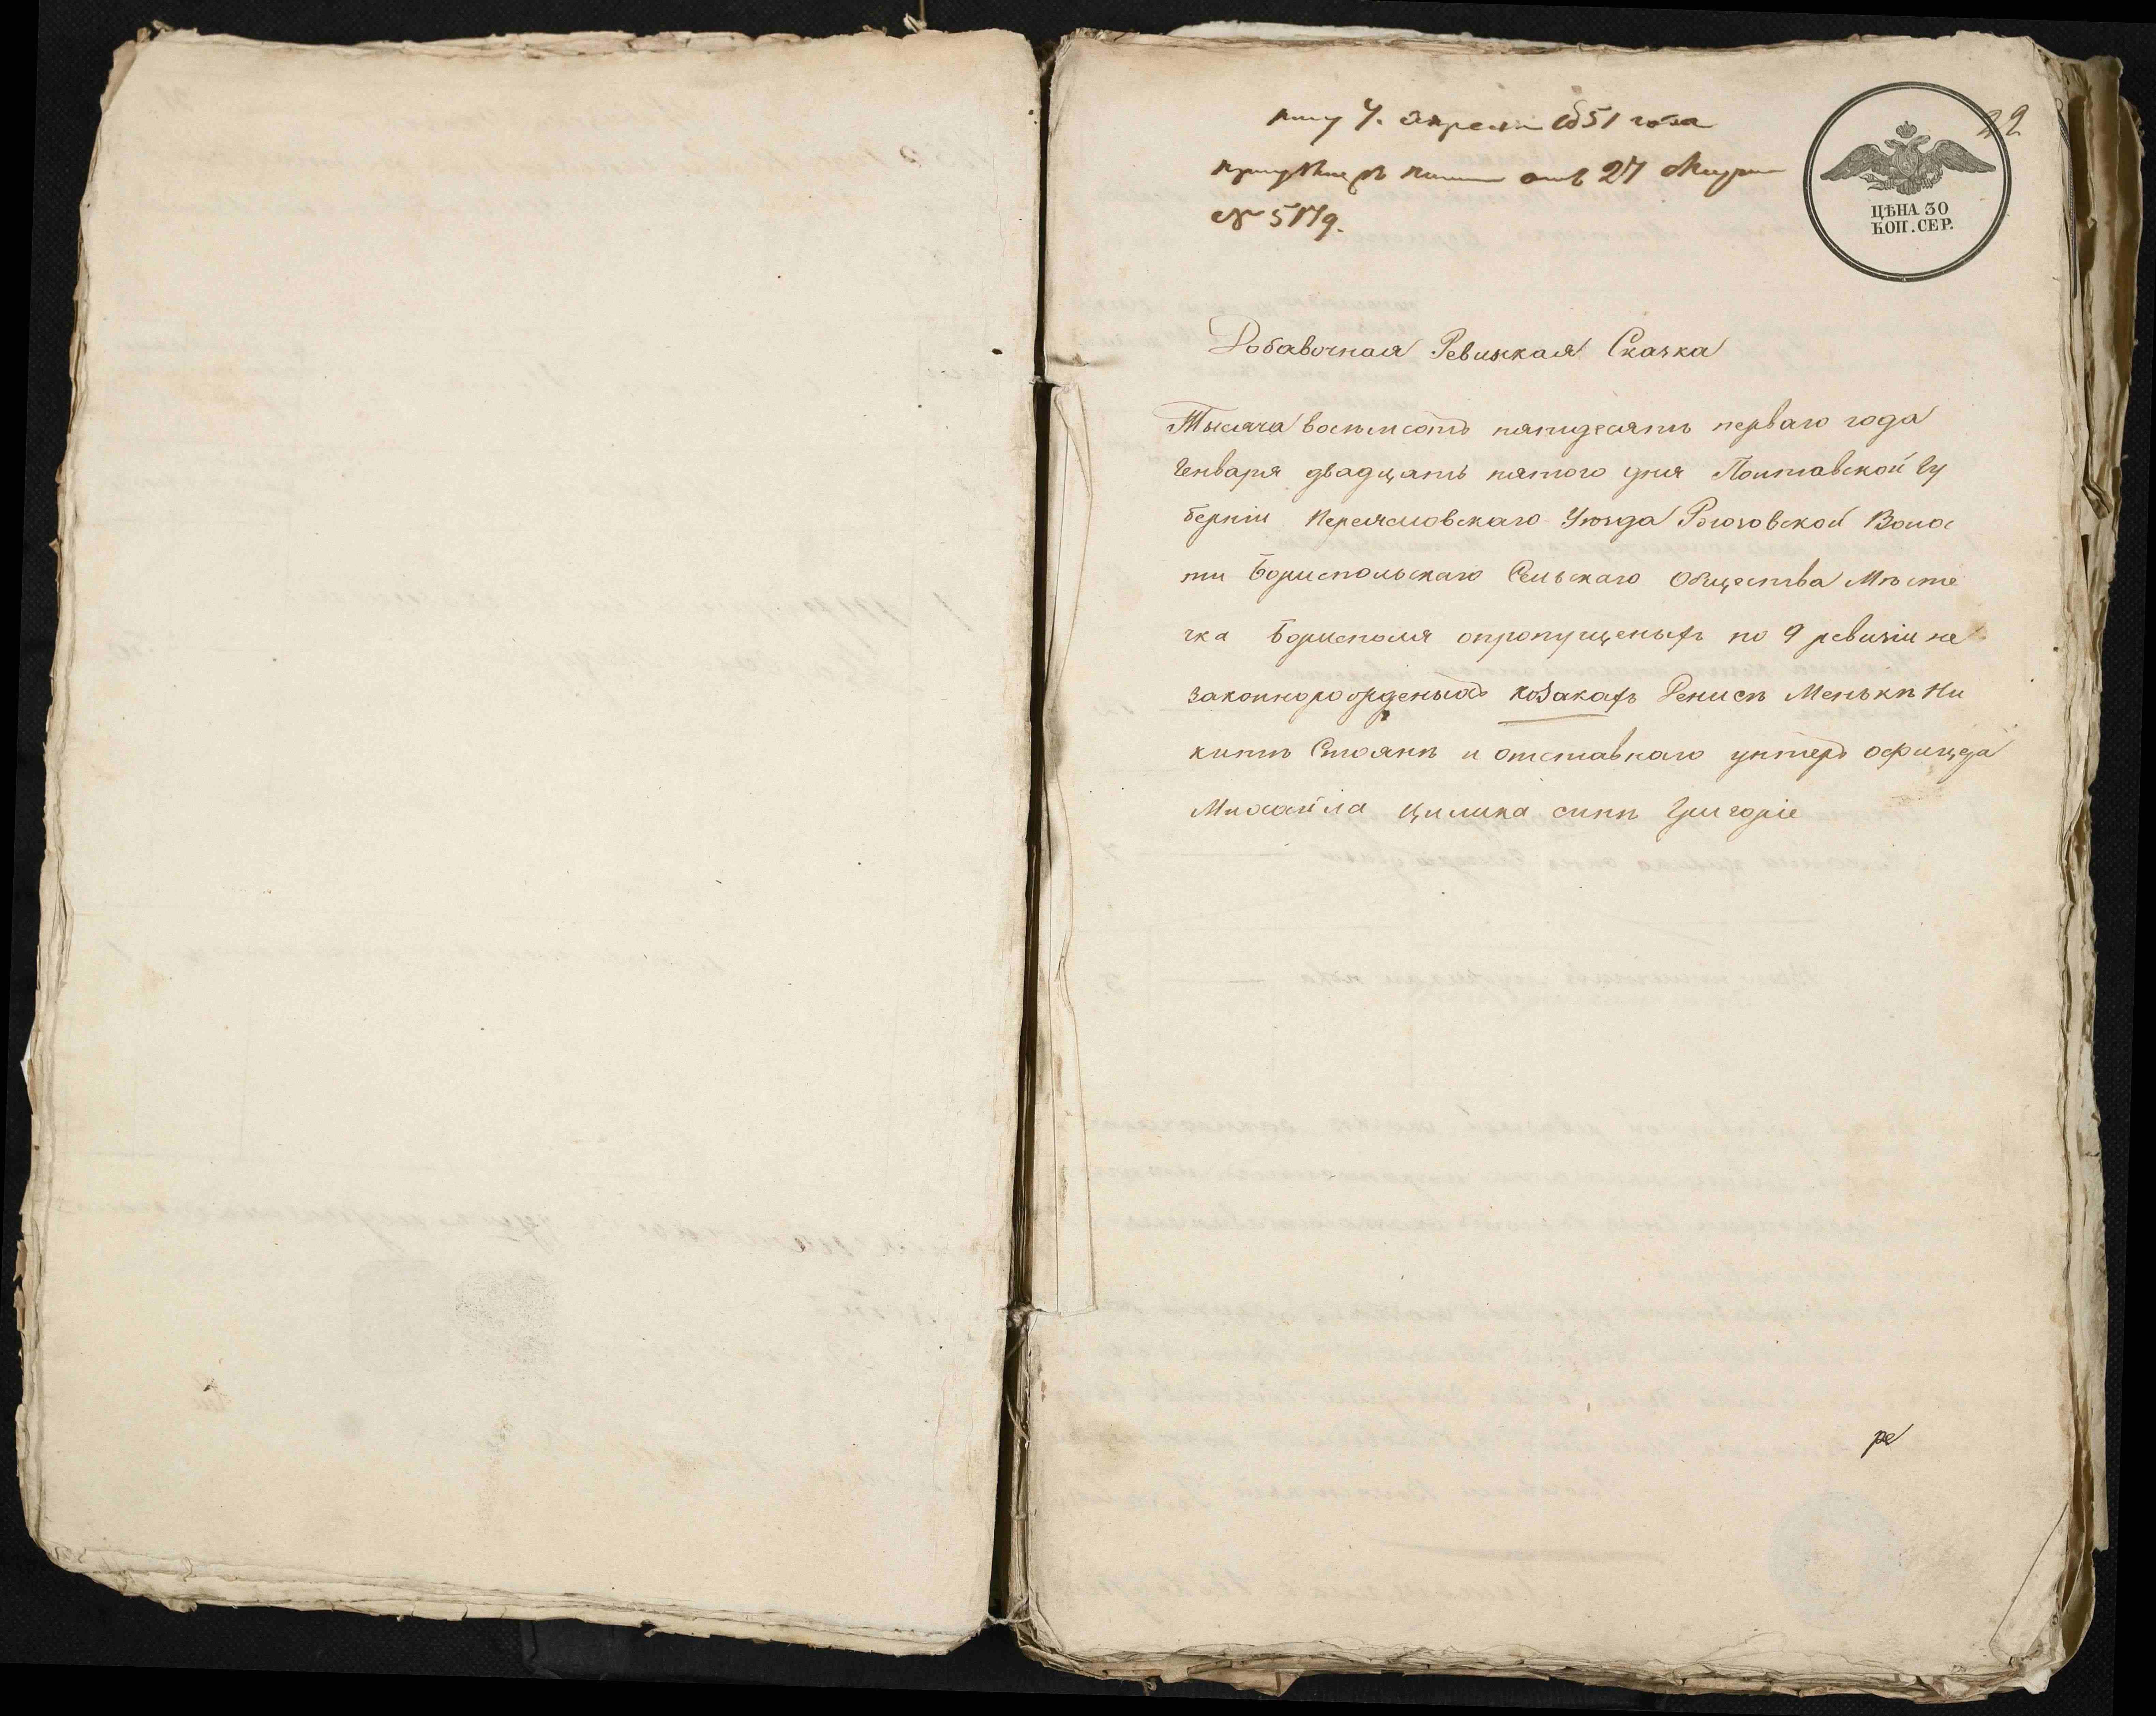 пол. 4. апреля 1851 года
при от 27 Марта
№ 5179.
22
ЦѢНА 30
КОП. СЕР.
Добавочная Ревизкая Сказка
Тысяча восемсотъ пятдесятъ перваго года
Генваря двадцать пятого дня Полтавской Гу
берніи Переясловскаго Уѣзда Рогозовской Волос
ти Бориспольскаго Сельскаго Общества Мѣсте
чка Борисполя опропущеныхъ по 9 ревизіи не
законнорожденыхъ козакахъ Денисѣ Менькѣ Ни
китѣ Стоянѣ и отставнаго унтеръ офицера
Михайла Цилика синѣ Григоріе
ре